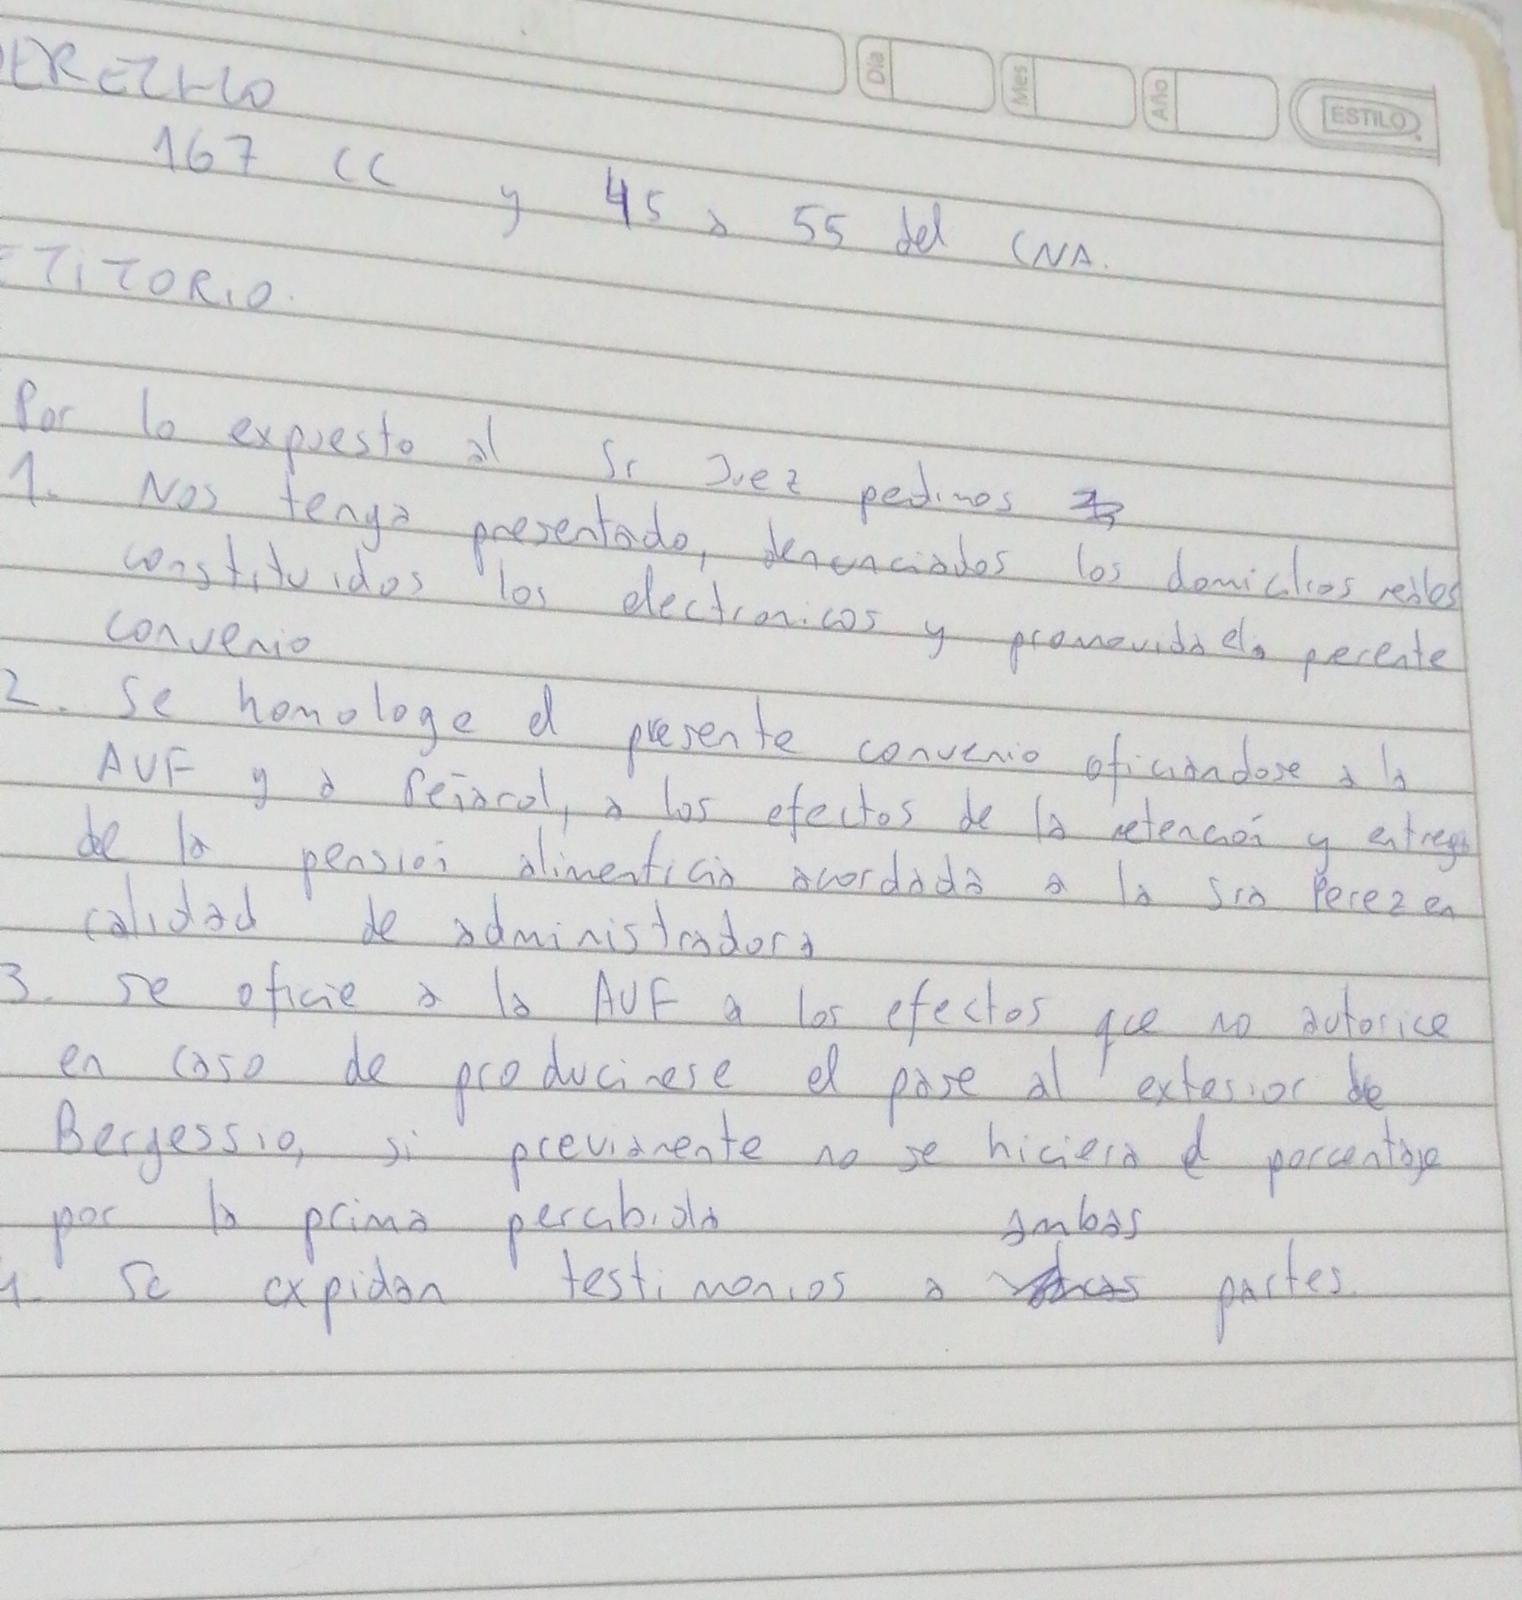 Día Mes Año ESTILO
DERECHO
167 CC y 45 a 55 del CNA.
ETITORIO.
Por lo expuesto al Sr Juez pedimos
1. Nos tenga presentado, denunciados los domicilios reales
constituidos los electronicos y promovida el perente
convenio
2. Se homologe el presente convenio oficiandose a la
AUF y a Peñarol, a los efectos de la retención y entrega
de la pensión alimenticia acordada a la Sra Perez en
calidad de administradora
3. se oficie a la AUF a los efectos que no autorice
en caso de producirese el pase al exterior de
Bergessio, si previamente no se hiciera el porcentaje
por la prima percibida
ambas
4. Se expidan testimonios a partes.